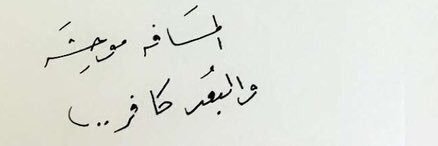 المسَافه موحِشَه
والبعُد كافر..!